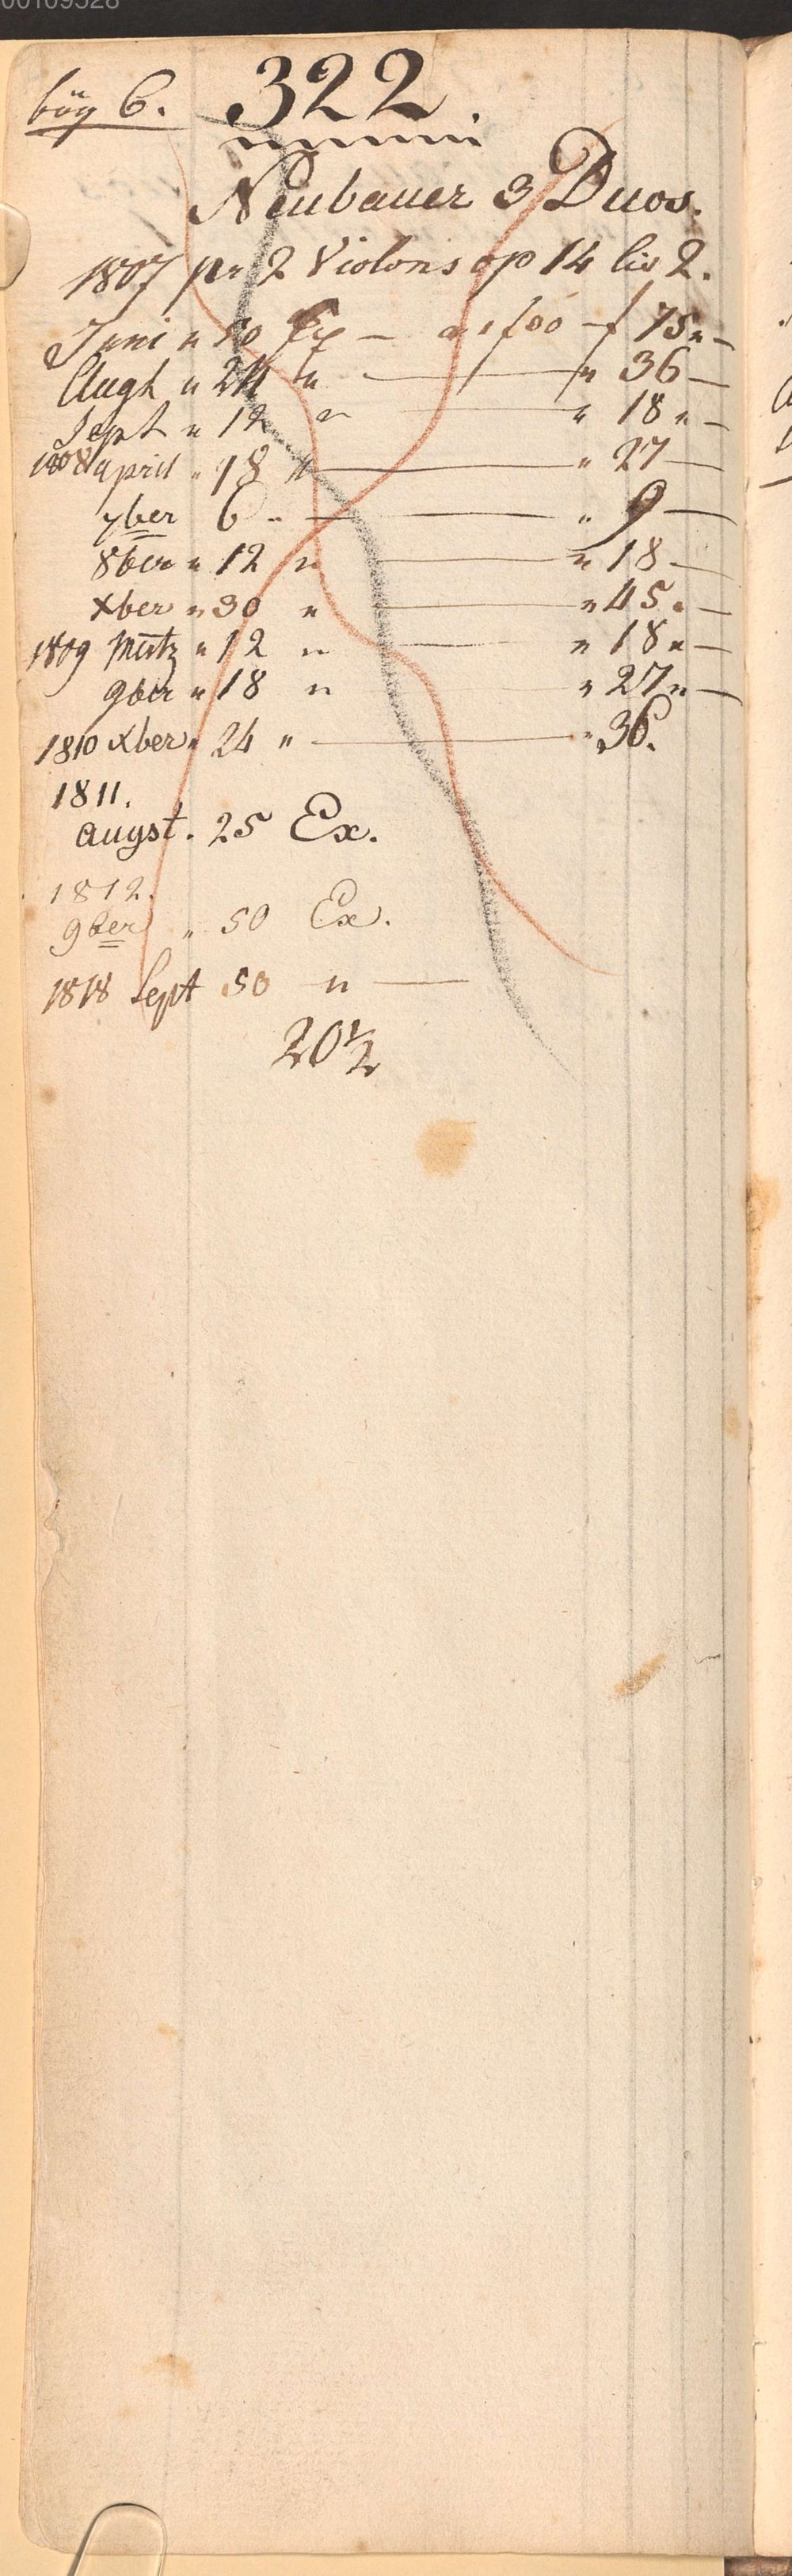 00109528
bög 6. 322.
Neubauer 3 Duos.
1807 pr 2 Violons op 14 lis 2.
Juni " 50 Ex — a 1f 30 — f 75 " —
Augt " 24 " — " 36 —
Sept " 12 " — " 18 " —
1808 april " 18 " — " 27 —
7ber 6 " — " 9 —
8ber " 12 " — " 18 —
Xber " 30 " — " 45 " —
1809 Mertz " 12 " — " 18 " —
9ber " 18 " — " 27 " —
1810 Xber " 24 " — " 36.
1811.
augst. 25 Ex.
1812.
9ber " 50 Ex.
1818 Sept 50 " —
20½